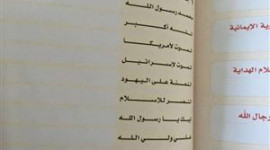 رية الإيمانية
لام الهداية
رجال الله
محمد رسول اللـه
الله أكبر
الموت لأمريكا
الموت لإسرائيل
اللعنة على اليهود
النصر للإسلام
لبيك يا رسول الله
علي ولي اللـه